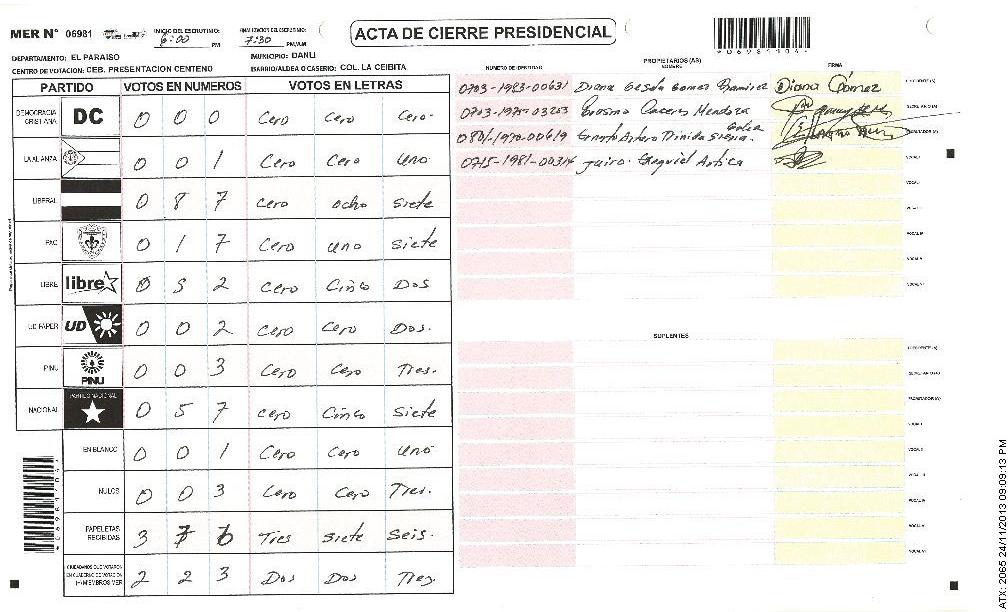 MER N° 06981
INICIO DEL ESCRUTINIO: 6:00 PM
FINALIZACION DEL ESCRUTINIO: 7:30 PM/AM
ACTA DE CIERRE PRESIDENCIAL
*06981104*
DEPARTAMENTO: EL PARAISO
MUNICIPIO: DANLI
CENTRO DE VOTACION: CEB. PRESENTACION CENTENO
BARRIO/ALDEA O CASERIO: COL. LA CEIBITA
PARTIDO VOTOS EN NUMEROS VOTOS EN LETRAS
DEMOCRACIA CRISTIANA DC 0 0 0 Cero Cero Cero
LA ALIANZA 0 0 1 Cero Cero Uno
LIBERAL 0 8 7 Cero ocho siete
PAC 0 1 7 Cero uno siete
LIBRE libre 0 5 2 Cero Cinco Dos
UD FAPER UD 0 0 2 Cero Cero Dos.
PINU PINU 0 0 3 Cero Cero Tres.
NACIONAL PARTIDO NACIONAL 0 5 7 cero Cinco siete
EN BLANCO 0 0 1 Cero Cero uno
NULOS 0 0 3 Cero Cero Tres.
PAPELETAS RECIBIDAS 3 7 6 Tres siete seis.
CIUDADANOS QUE VOTARON EN CUADERNO DE VOTACION (+) MIEMBROS MER 2 2 3 Dos Dos Tres
PROPIETARIOS (AS)
NUMERO DE IDENTIDAD NOMBRE FIRMA
0703-1983-00631 Diana Gomez Ramirez Diana Gómez
0703-1975-03203 Erasmo Caceres Mendoza SECRETARIO (A)
0801-1970-00619 Arturo
0715-1981-00314 Jairo Ezequiel Artica VOCAL I
VOCAL II
VOCAL III
VOCAL IV
VOCAL V
VOCAL VI
SUPLENTES
PRESIDENTE (A)
SECRETARIO (A)
ESCRUTADOR (A)
VOCAL I
VOCAL II
VOCAL III
VOCAL IV
VOCAL V
VOCAL VI
*06981104*
ATX: 2065 24/11/2013 09:09:13 PM